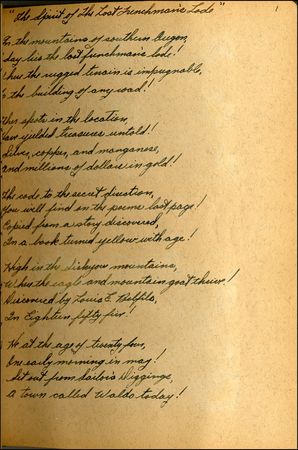 "The Spirit of The Lost Frenchman's Lode"
1
In the mountains of southern Oregon,
Lay lies the lost frenchman's lode!
Thus the rugged terrain is impregnable,
To the building of any road!
This spots in the location,
Have yielded treasures untold!
Silver, copper, and manganese,
and millions of dollars in gold!
The code to the secret direction,
You will find on the poems last page!
Copied from a story discovered,
In a book turned yellow with age!
High in the Siskiyou mountains,
Where the eagle and mountain goat thrive!
Discovered by Louis E.
In Eighteen fifty five!
He at the age of twenty four,
One early morning in may!
Set out from Sailor's Diggings,
A town called Waldo today!